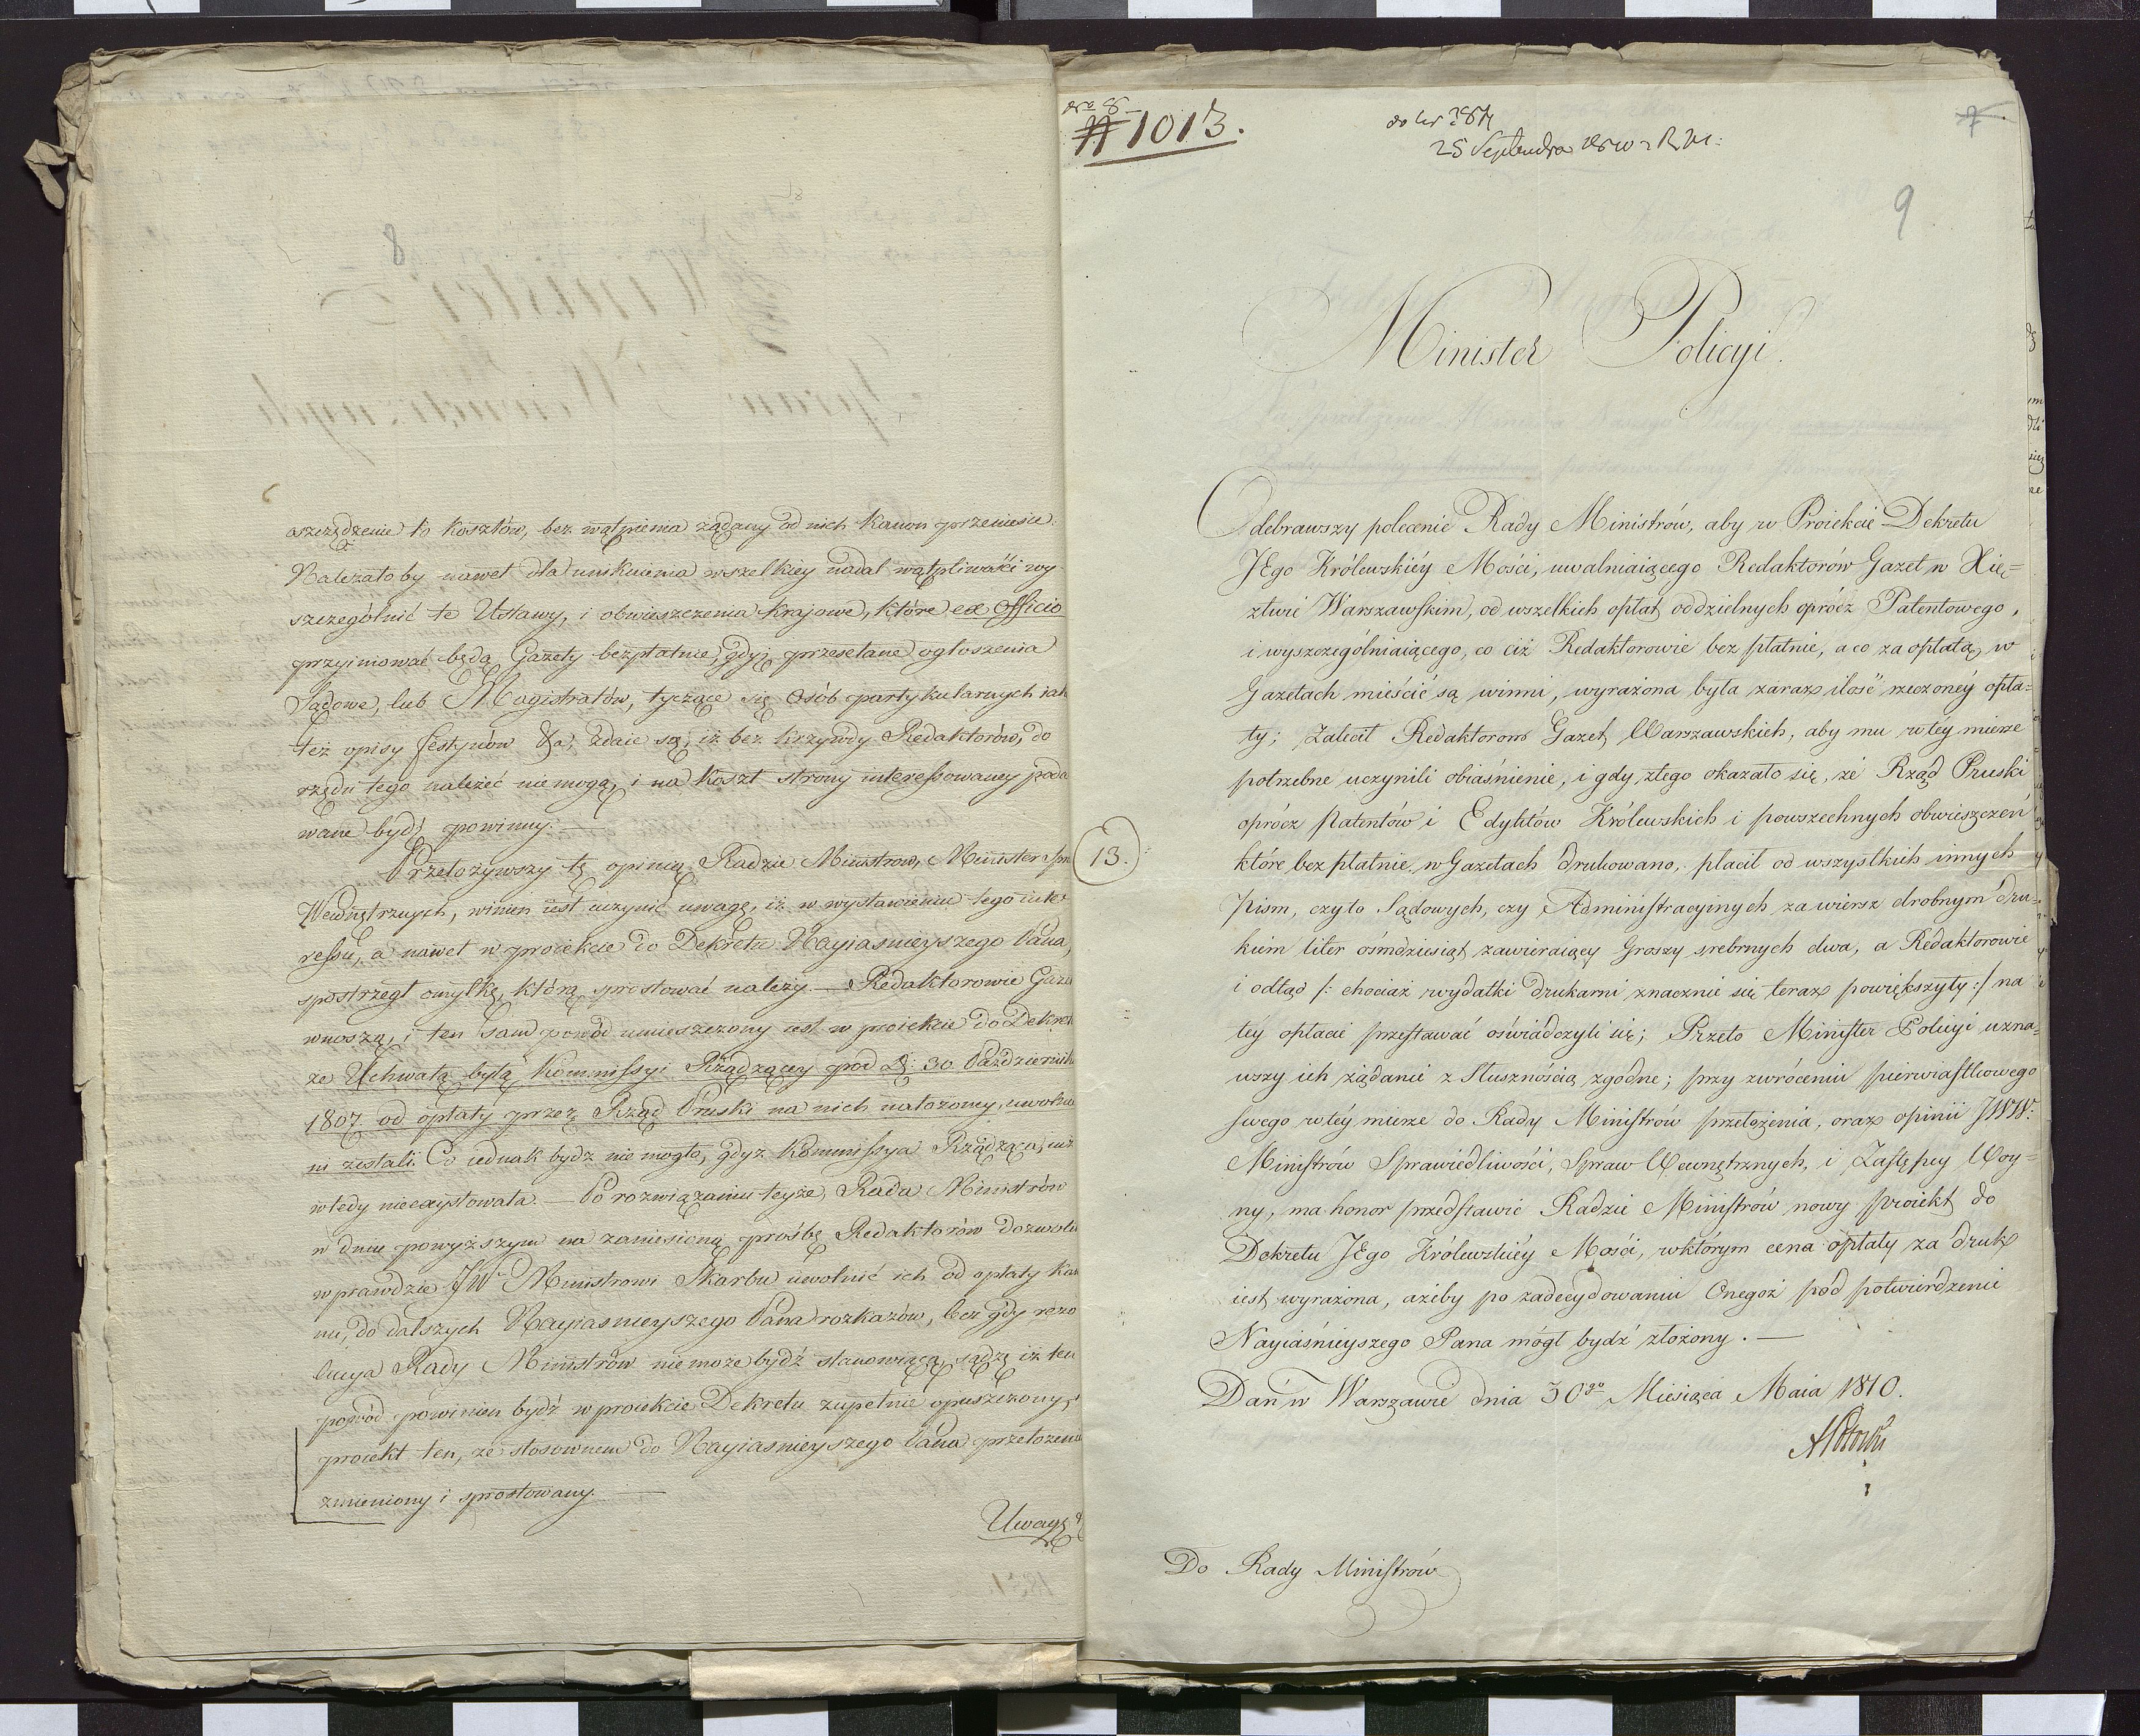 8
oszczędzenie to kosztów, bez wątpienia żądany od nich Kanon przeniesie.
Należałoby nawet dla uniknienia wszelkiey nadal wątpliwości wy-
szczególnić te Ustawy, i obwieszczenia krajowe, które ex officio
przyimować będą Gazety bezpłatnie, gdyż przesełane ogłoszenia
Sądowe, lub Magistratów, tyczące się Osób partykularnych iak
też opisy festynów &a, zdaie się, iż bez krzywdy Redaktorów, do
rzędu tego należeć nie mogą, i na koszt strony interessowaney poda
wane bydź powinny. —
Przełożywszy tę opinią Radzie Ministrów, Minister Spr
Wewnętrznych, winien iest uczynić uwagę, iż w wystawieniu tego inte
ressu, a nawet w proiekcie do Dekretu Nayiasnieyszego Pana,
spostrzegł omyłkę, którą sprostować należy. — Redaktorowie Gazet
wnoszą, i ten sam powód umieszczony iest w proiekcie do Dekretu
że Uchwałą byłą Kommissyi Rządzącey pod d: 30. Październik
1807. od opłaty przez Rząd Pruski na nich nałożoney, uwolnie
ni zostali. Co iednak bydz nie mogło, gdyż Kommissya Rządząca, iuż
wtedy nieexystowała. — Po rozwiązaniu teyże, Rada Ministrów
w dniu powyższym na zaniesioną prośbę Redaktorów dozwoliła
wprawdzie JW Ministrowi Skarbu uwolnić ich od opłaty Kan
nu, do dalszych Nayiasnieyszego Pana rozkazów, lecz gdy rezo
lucya Rady Ministrów nie może bydź stanowiącą, sądzę iż ten
powód powinien bydź w proiekcie Dekretu zupełnie opuszczony, a
proiekt ten, ze stosownem do Nayiasnieyszego Pana przełożeniem
zmieniony i sprostowany. —
Uwagę
# 1013.
25 Septembra
7
9
Minister Policyi.
Odebrawszy polecenie Rady Ministrów, aby w Proiekcie Dekretu
JEgo Królewskiéy Mości, uwalniaiącego Redaktorów Gazet w Xię=
ztwie Warszawskim, od wszelkich opłat oddzielnych oprócz Patentowego,
i wyszczególniaiącego, co ciż Redaktorowie bez płatnie, a co za opłatą w
Gazetach mieścić są winni, wyrażona była zaraz ilość rzeczonéy opła=
ty; Zalecił Redaktorom Gazet Warszawskich, aby mu w téy mierze
potrzebne uczynili obiaśnienie, i gdy z tego okazało się, że Rząd Pruski
oprócz Patentów i Edyktów Królewskich i powszechnych obwieszczeń
które bez płatnie w Gazetach drukowano, płacił od wszystkich innych
13.
Pism, czyto Sądowych, czy Administracyinych za wiersz drobnym dru=
kiem liter ośmdziesiąt zawieraiący Groszy srebrnych dwa, a Redaktorowie
i odtąd /: chociaż wydatki drukarni znacznie się teraz powiększyły :/ na
téy opłacie przestawać oświadczyli się; Przeto Minister Policyi uzna=
wszy ich żądanie z Słusznością zgodne; przy zwróceniu pierwiastkowego
swego w téy mierze do Rady Ministrów przełożenia, oraz opinii JWW:
Ministrów Sprawiedliwości, Spraw Wewnętrznych, i Zastępcy Woy=
ny, ma honor przedstawić Radzie Ministrów nowy proiekt do
Dekretu JEgo Królewskiéy Mości, w którym cena opłaty za druk
iest wyrażona, ażeby po zadecydowaniu Onegoż pod potwierdzenie
Nayiaśnieyszego Pana mógł bydź złożony. —
Dań w Warszawie dnia 30go Miesiąca Maia 1810.
APotocki
Do Rady Ministrów